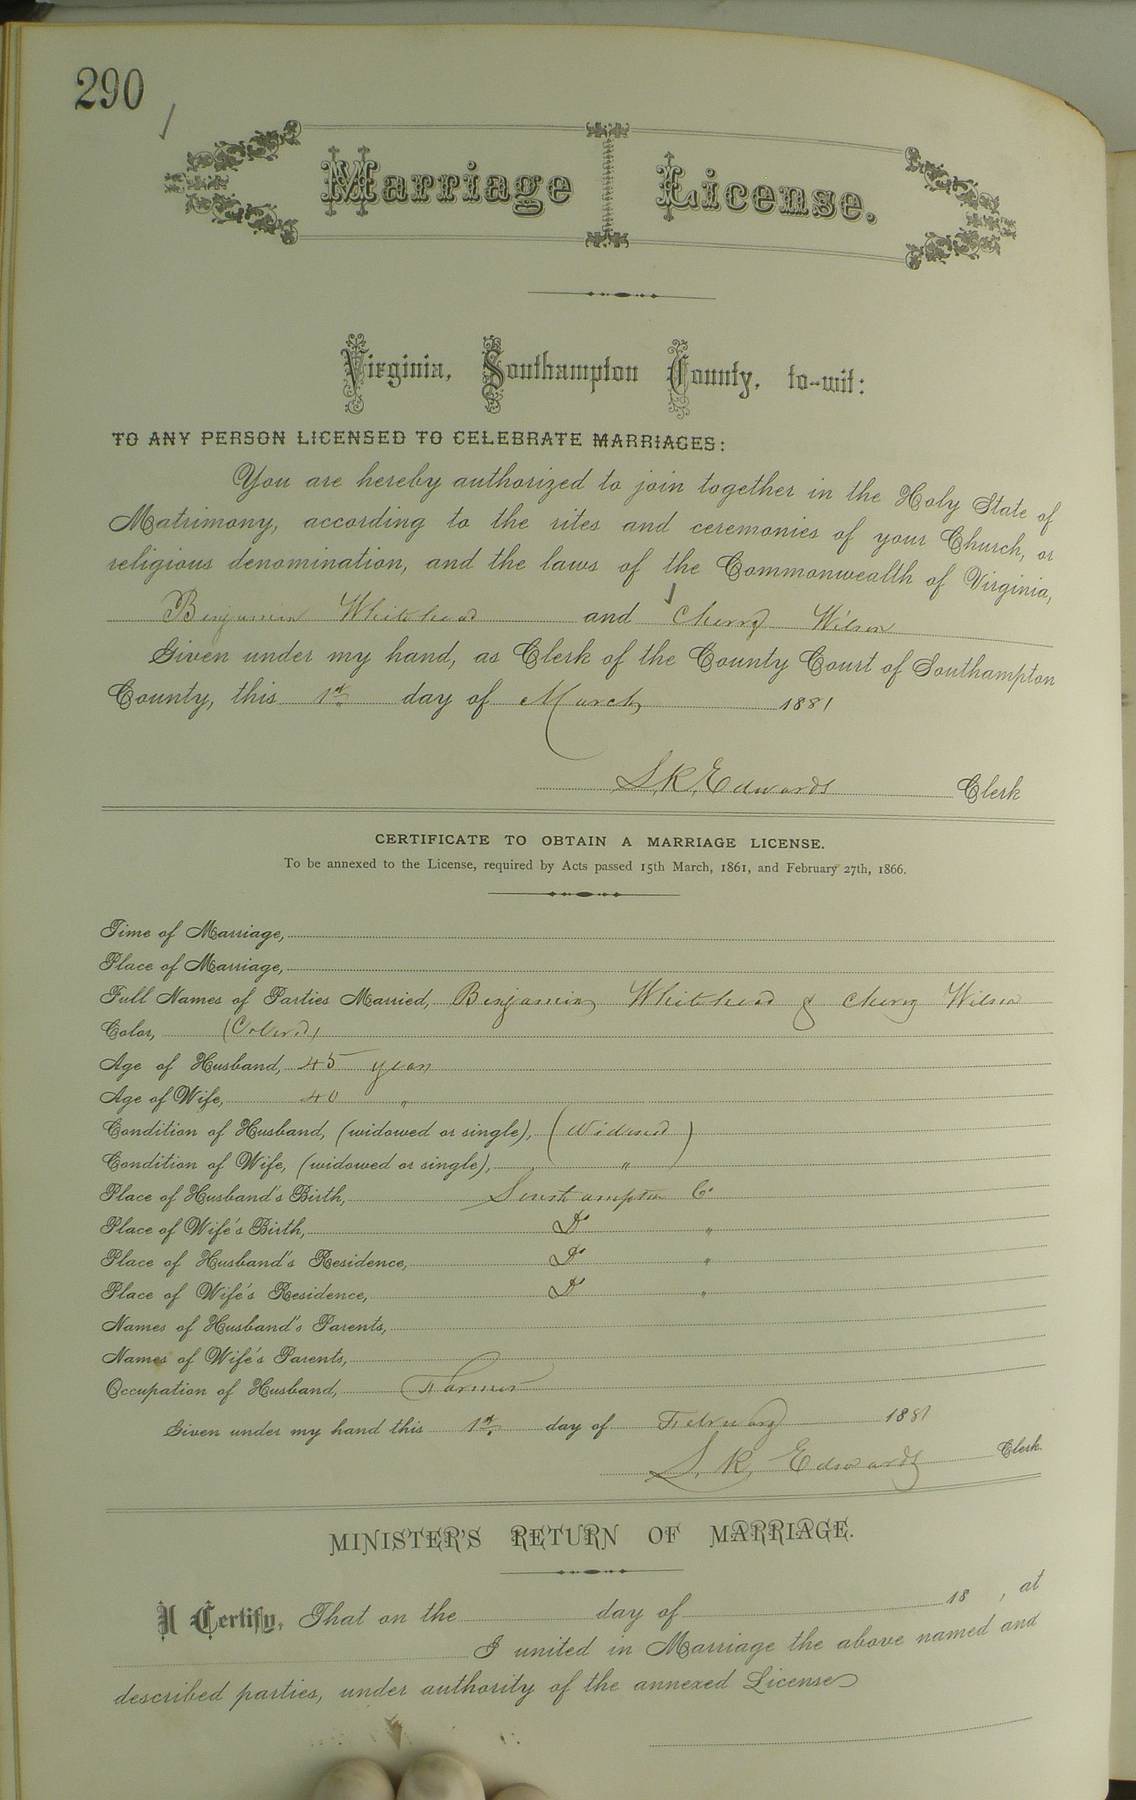 290
Marriage License.
Virginia, Southampton County, to-wit:
TO ANY PERSON LICENSED TO CELEBRATE MARRIAGES:
You are hereby authorized to join together in the Holy State of
Matrimony, according to the rites and ceremonies of your Church, or
religious denomination, and the laws of the Commonwealth of Virginia,
Benjamin Whitehead and Cherry Wilson
Given under my hand, as Clerk of the County Court of Southampton
County, this 1st day of March 1881
S. R. Edwards Clerk
CERTIFICATE TO OBTAIN A MARRIAGE LICENSE.
To be annexed to the License, required by Acts passed 15th March, 1861, and February 27th, 1866.
Time of Marriage,
Place of Marriage,
Full Names of Parties Married, Benjamin Whitehead & Cherry Wilson
Color, (Colored)
Age of Husband, 45 years
Age of Wife, 40 "
Condition of Husband, (widowed or single), (Widowed)
Condition of Wife, (widowed or single), "
Place of Husband's Birth, Southampton Co
Place of Wife's Birth, Do "
Place of Husband's Residence, Do "
Place of Wife's Residence, Do "
Names of Husband's Parents,
Names of Wife's Parents,
Occupation of Husband, Farmer
Given under my hand this 1st day of February 1881
S. R. Edwards Clerk.
MINISTER'S RETURN OF MARRIAGE.
I Certify, That on the day of 18 , at
I united in Marriage the above named and
described parties, under authority of the annexed License